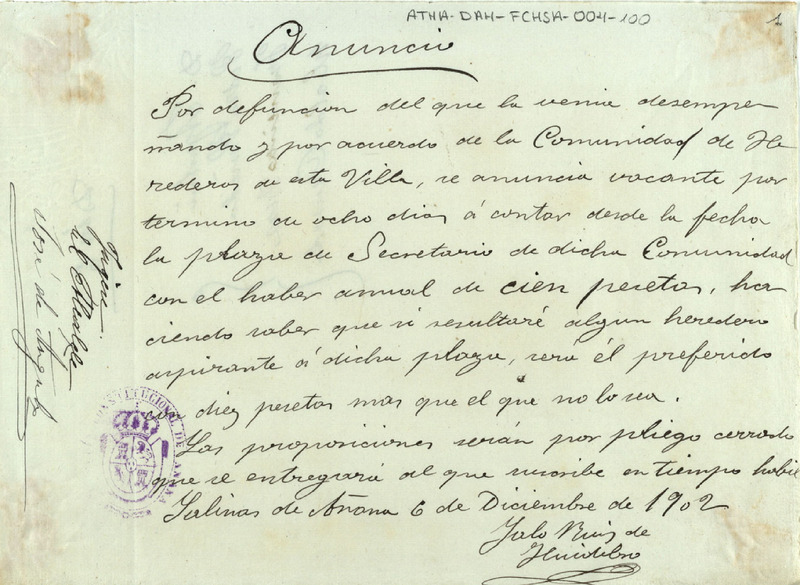 ATHA-DAH-FCHSA-004-100
1
Anuncio
Por defuncion del que la venia desempe-
ñando y por acuerdo de la Comunidad de He-
rederos de esta Villa, se anuncia vacante por
termino de ocho dias á contar desde la fecha
la plaza de Secretario de dicha Comunidad
con el haber anual de cien pesetas, ha
ciendo saber que si resultaré algun heredero
aspirante á dicha plaza, será él preferido
con diez pesetas mas que el que no lo sea.
Las proposiciones serán por pliego cerrado
que se entregará al que suscribe en tiempo habil
Salinas de Añana 6 de Diciembre de 1902
Ruiz de
Huidobro
Fijese
El Alcalde
José de Angulo
CONSTITUCIONAL DE